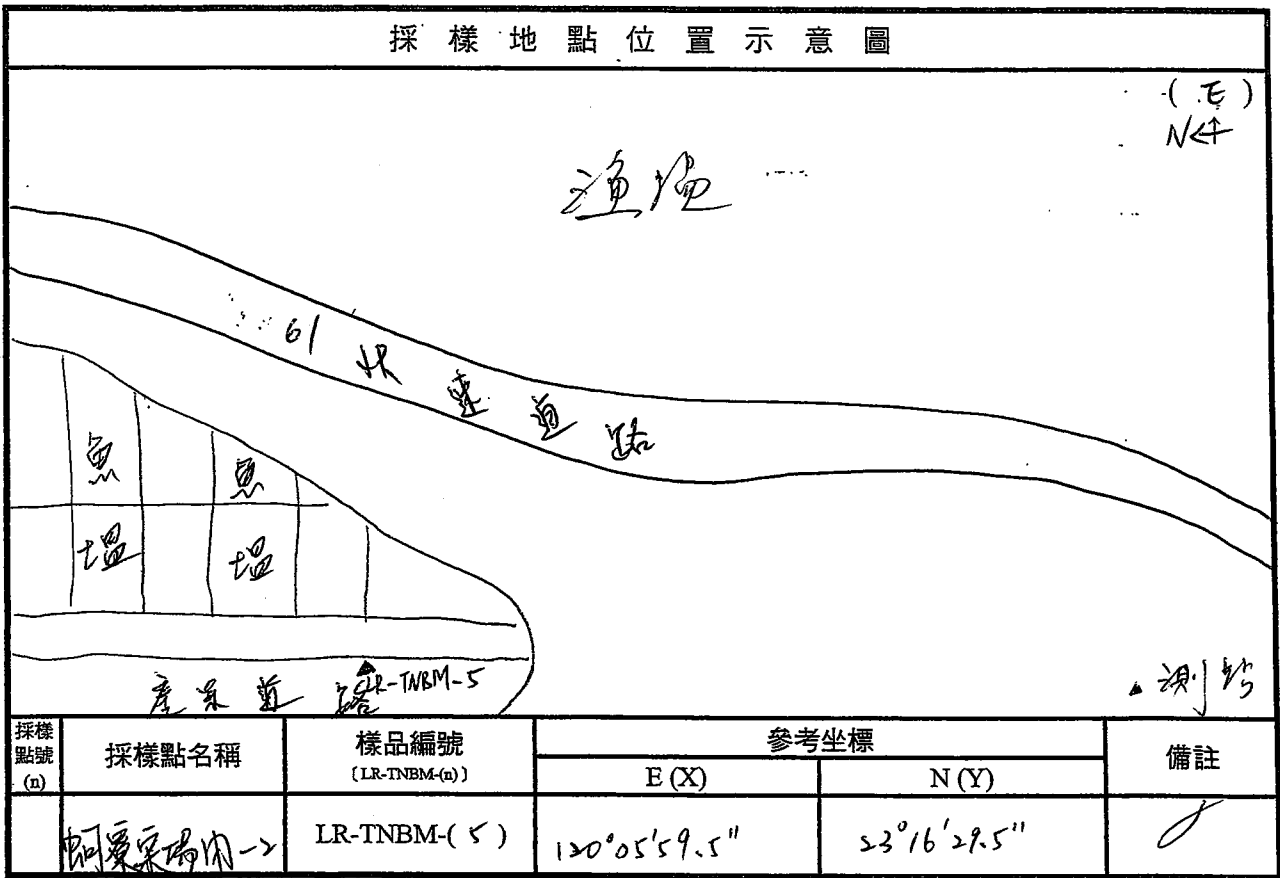 採樣地點位置示意圖
( E )
N
漁塭
61 快速道路
魚塭
魚塭
LR-TNBM-5
產業道路
▲ 測站
採樣點號(n) 採樣點名稱 樣品編號 [LR-TNBM-(n)] 參考坐標 E (X) N (Y) 備註
LR-TNBM-( 5 ) 120°05'59.5" 23°16'29.5"